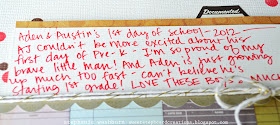 Documented.
Aden & Austin's 1st day of school - 2012 -
AJ couldn't be more excited about his
first day of Pre-K - I'm so proud of my
brave little man! And Aden is just growing
up much too fast - can't believe he's
starting 1st grade! LOVE THESE BOYS